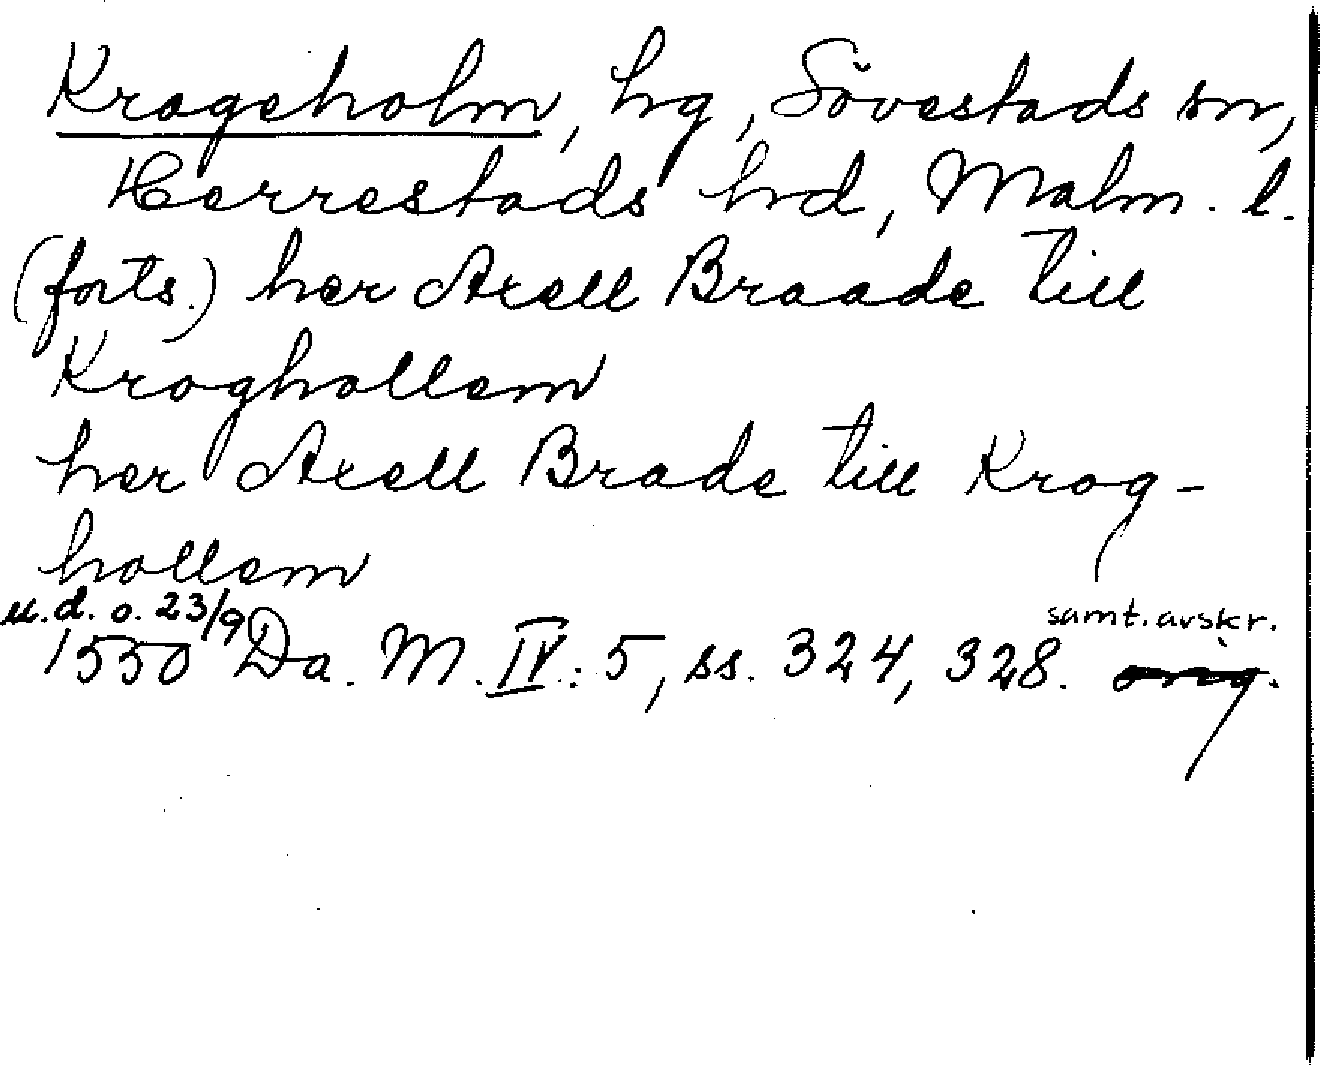 Krageholm, hg, Sövestads sn,
Herrestads hrd, Malm. l.
(forts.) her Axell Braade till
Kroghollem
her Axell Brade till Krog-
hollem
u.d. o. 23/9 samt. avskr.
1550 Da. M. IV: 5, ss. 324, 328. orig.